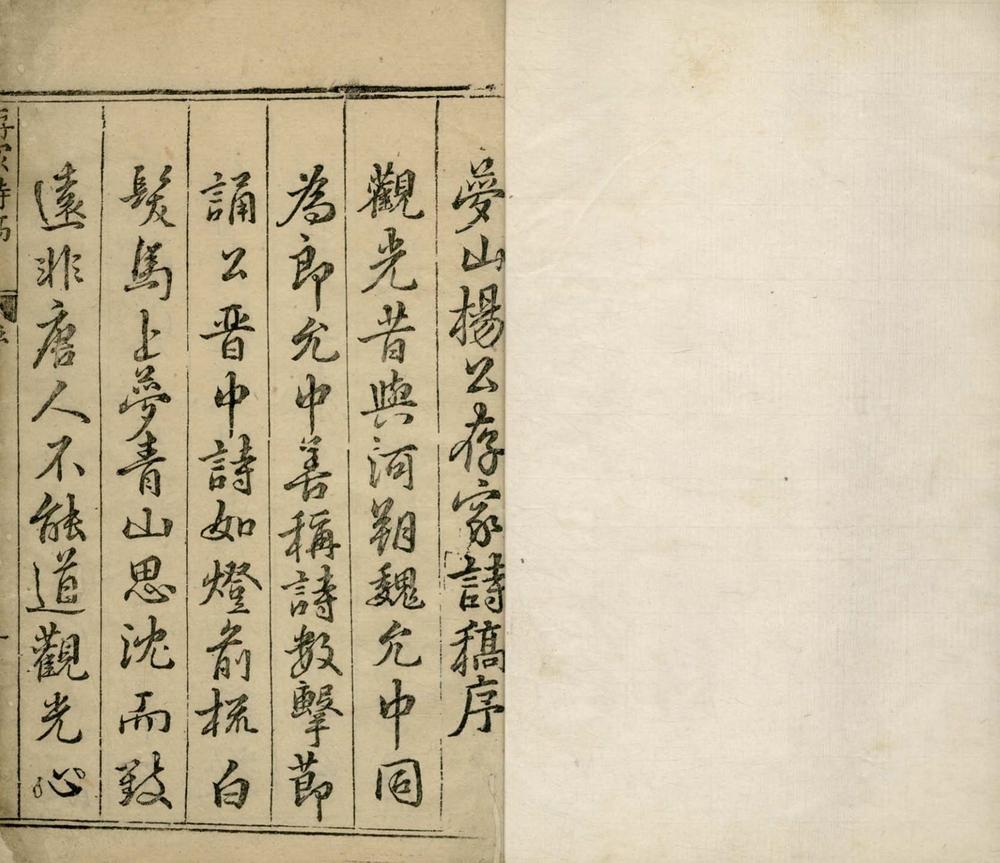 夢山楊公存家詩稿序
觀光昔與河朔魏允中同
為郎允中善稱詩數擊節
誦公晋中詩如燈前梳白
髮馬上夢青山思沈而致
遠非唐人不能道觀光心
存家詩稿